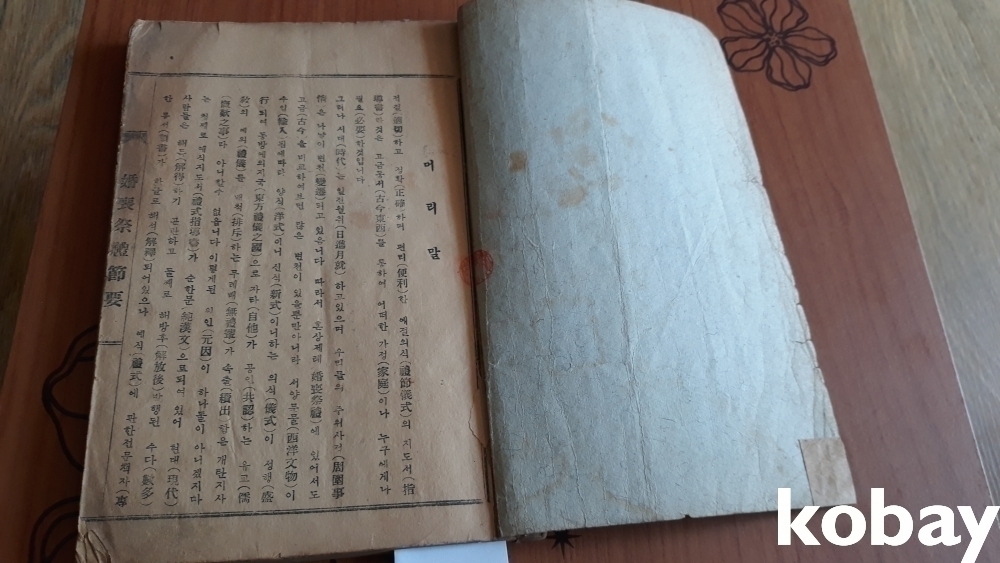 머리말
하고 정확(正確)하며 편리(便利)한 예절의식(禮節儀式)의 지도서(指
導書)하것은 고금동서(古今東西)를 통하여 어떠한 가정(家庭)이나 누구에게나
필요(必要)하것입니다
그러나 시대(時代)는 일진월취(日進月就)하고있으며 우리들의 주위사정(周圍事
情)은 나날이 변천(變遷)되고 있읍니다 따라서 혼상제례(婚喪祭禮)에 있어서도
고금(古今)을 비교하여보면 많은 변천이 있을뿐만아니라 서양문물(西洋文物)이
수입(輸入)됨에따라 양식(洋式)이니 신식(新式)이니하는 의식(儀式)이 성행(盛
行)되며 동방예의지국(東方禮儀之國)으로 자타(自他)가 공인(共認)하는 유교(儒
敎)의 예의(禮儀)를 배척(排斥)하는 무례배(無禮輩)가 속출(續出)함은 개탄지사
(慨歎之事)다 아니할수 없읍니다 이렇게된 원인(元因)이 하나둘이 아니겠지다
는 첫째로 예식지도서(禮式指導書)가 순한문(純漢文)으로되여 있어 현대(現代)
사람들은 해득(解得)하기 곤란하고 둘째로 해방후(解放後)발행된 수다(數多)
한 (書)가 한글로 해석(解釋)되어있으나 예식(禮式)에 관한전문학자(專
婚喪祭禮節要
kobay